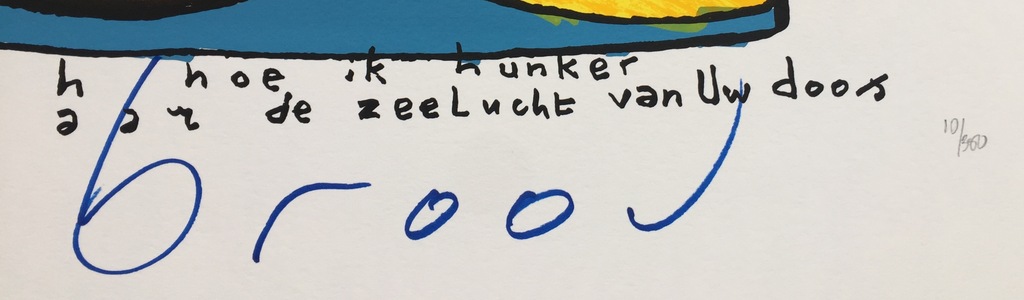 h hoe ik hunker
aan de zeelucht van Uw doos
brood
10/300